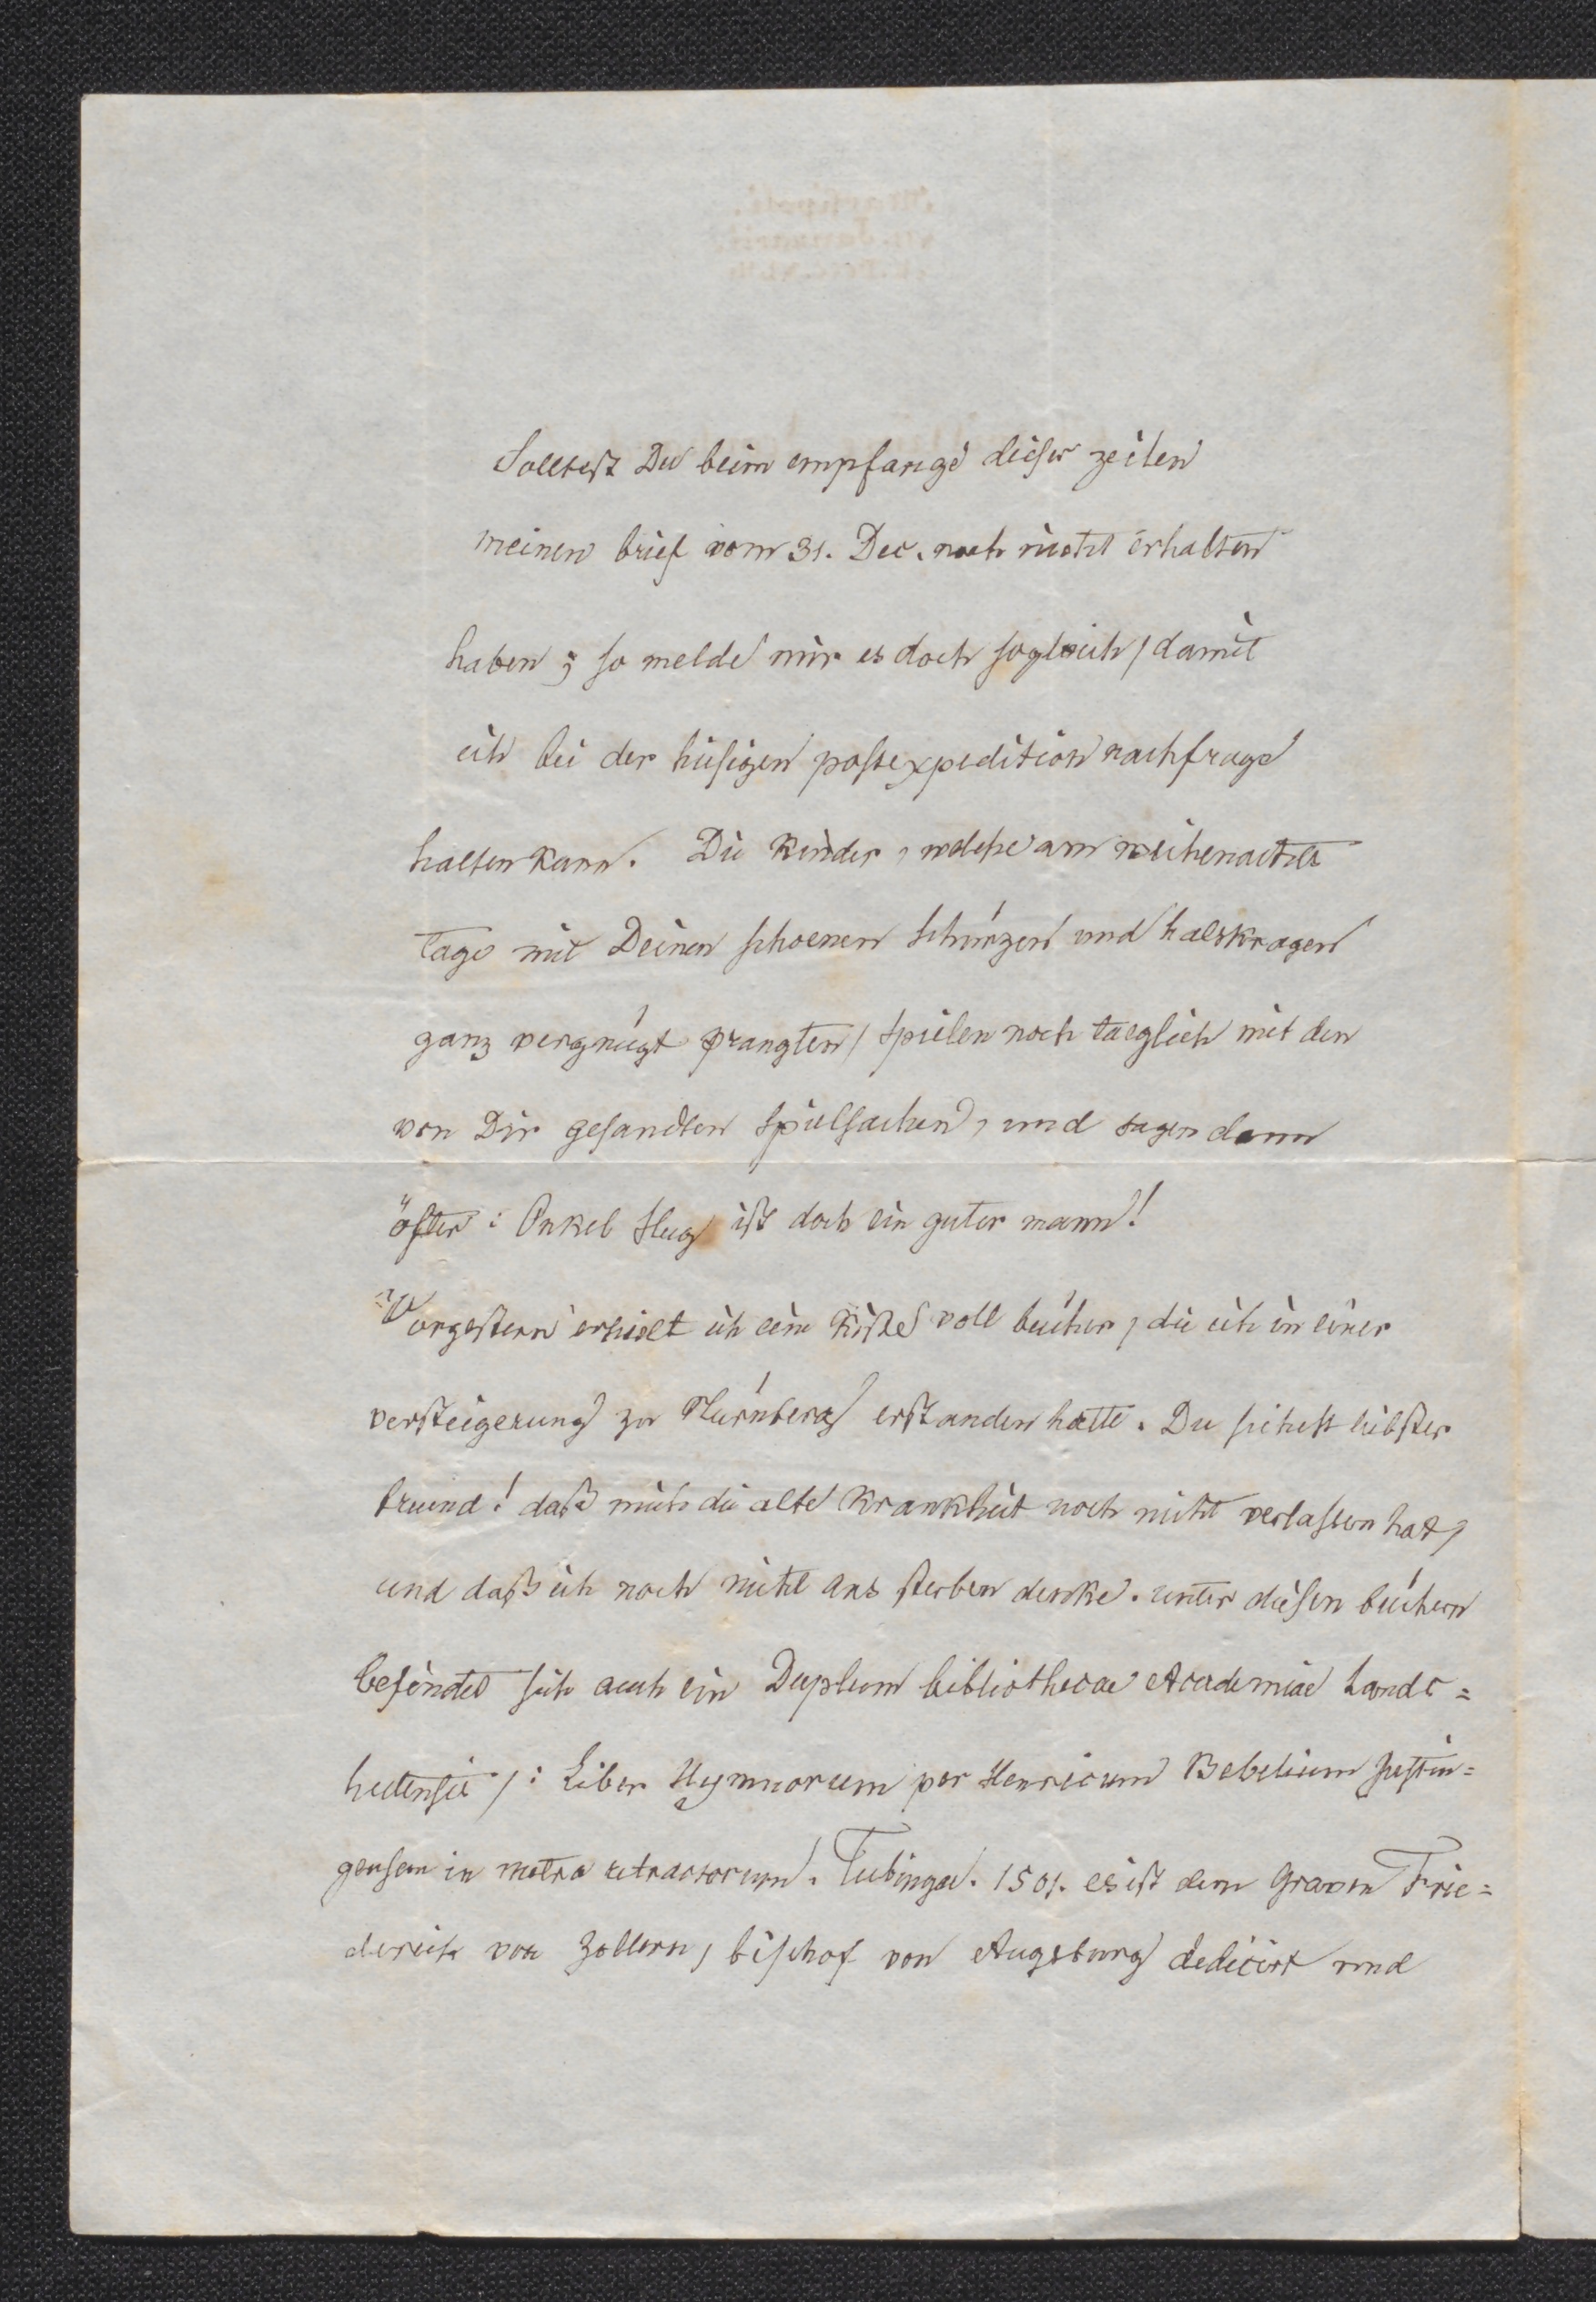 Solltest Du beim empfange dieser zeilen
meinen brief vom 31. Dec. noch nicht erhalten
haben; so melde mir es doch sogleich, damit
ich bei der hiesigen postexpedition nachfrage
halten kann. Die Kinder, welche am weihenachts
tage mit Deinen schoenen schürzen und halskragen
ganz vergnügt prangten, spielen noch taeglich mit den
von Dir gesandten spielsachen, und sagen dann
öfter: Onkel Hug ist doch ein guter mann!
Vorgestern erhielt ich eine Kiste voll bücher, die ich in einer
versteigerung zu Nürnberg erstanden hatte. Du siehest liebster
freund! daß mich die alte Krankheit noch nicht verlassen hat,
und daß ich noch nicht ans sterben denke. unter diesen büchern
befindet sich auch ein Duplum bibliothecae Academiae Lands=
hutensis /: Liber Hymnorum per Henricum Bebelium Justin=
gensem in metra retractorum. Tubingae. 1501. es ist dem Graven Frie=
derich von Zollern, bischof von Augsburg dedicirt und